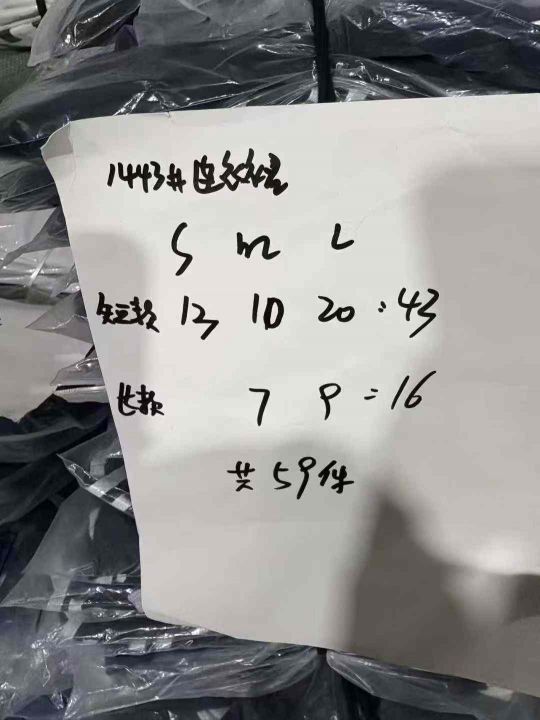 1443# 连衣裙
S M L
短款 13 10 20 = 43
长款 7 9 = 16
共 59 件